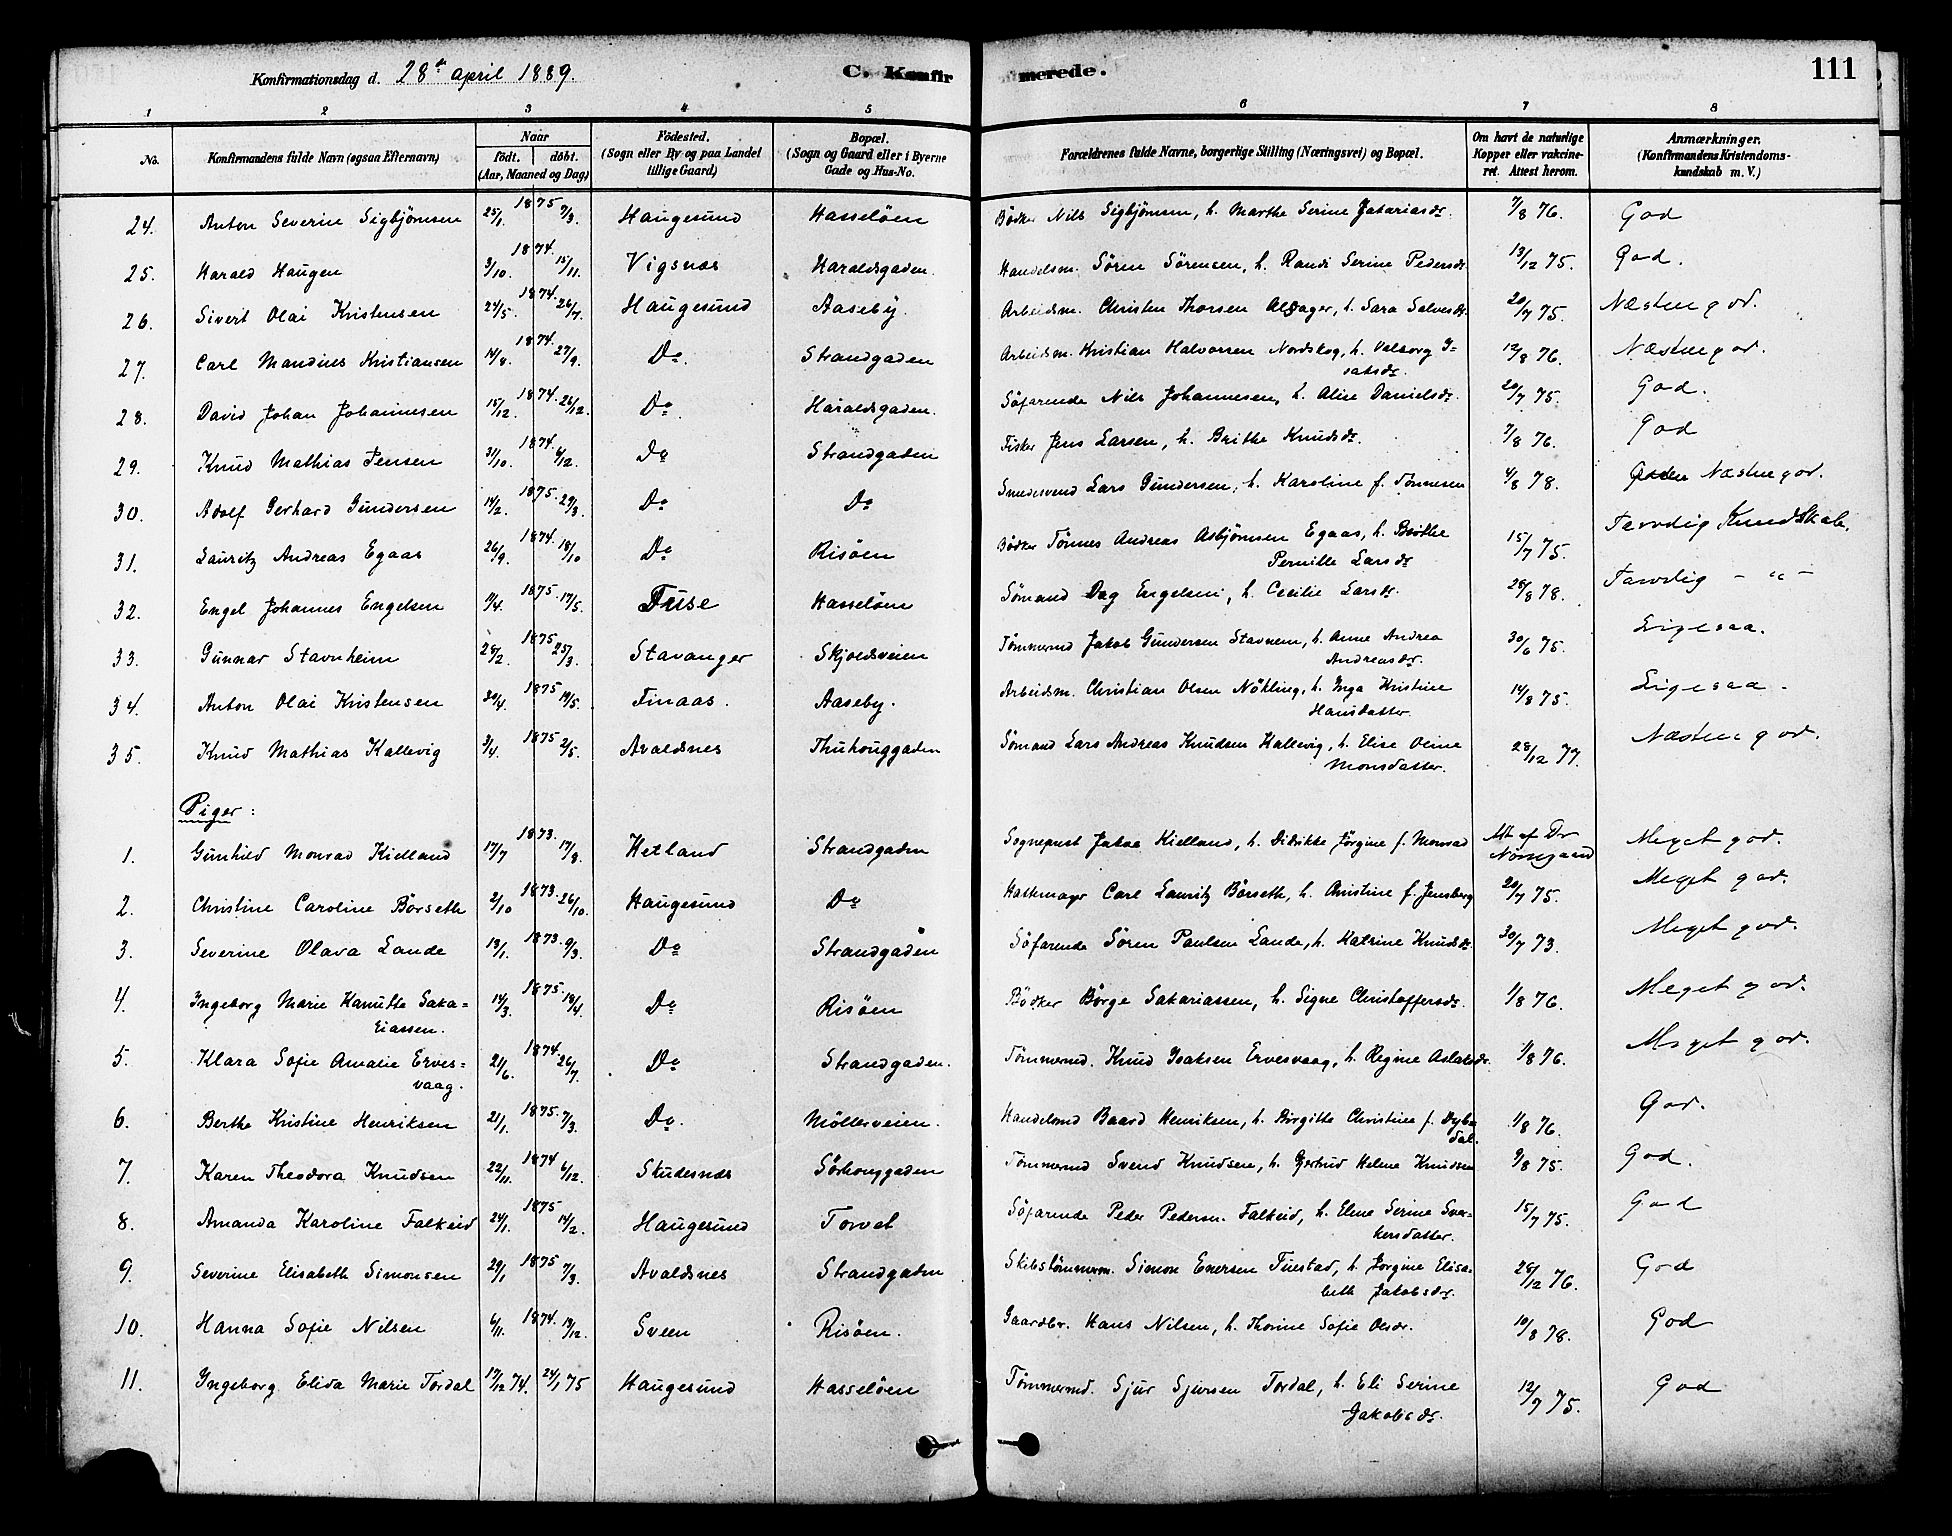 Konfirmationsdag d. 28de April 1889. C. Konfirmerede. 111
1 2 3 4 5 6 7 8
No. Konfirmandens fulde Navn (ogsaa Efternavn) Naar født. døbt. (Aar, Maaned og Dag) Fødested. (Sogn eller By og paa Landet tillige Gaard) Bopæl. (Sogn og Gaard eller i Byerne Gade og Hus-No. Forældrenes fulde Navne, borgerlige Stilling (Næringsvei) og Bopæl. Om havt de naturlige Kopper eller vakcineret. Attest herom. Anmærkninger. (Konfirmandens Kristendomskundskab m. V.)
24. Anton Severin Sigbjörnsen 25/1. 1875 7/3. Haugesund Hasselöen Bödker Nils Sigbjörnsen, h. Marthe Serine Zakariasdr. 7/8 76. God
25. Harald Haugen 3/10. 1874. 15/11. Vigsnæs Haraldsgaden. Handelsm. Sören Sörensen, h. Randi Serine Pedersdr. 13/12 75. God.
26. Sivert Olai Kristensen 24/5. 1874. 26/7. Haugesund Aaseby. Arbeidsm. Christen Thorsen Alsager, h. Sara Salvesdr. 20/7 75. Næsten god.
27. Carl Mandius Kristiansen 14/8. 1874. 27/9. Do. Strandgaden Arbeidsm. Kristian Halvorsen Nordskog, h. Valborg Isaksdr. 12/8 76. Næsten god.
28. David Johan Johannesen 15/12. 1874. 26/12. Do. Haraldsgaden. Söfarende Nils Johannesen, h. Alice Danielsdr. 20/7 75. God.
29. Knud Mathias Jensen 31/10. 1874. 6/12. Do Strandgaden Fisker Jens Larsen, h. Brithe Knudsdr. 7/8 76. God
30. Adolf Gerhard Gundersen 14/2. 1875. 29/3. Do Do Smedesvend Lars Gundersen, h. Karoline f. Tönnesen 4/8 78. Næsten god.
31. Lauritz Andreas Egaas 26/9. 1874. 18/10 Do Risöen Bödker Tönnes Andreas Asbjörnsen Egaas, h. Brithe Pernille Larsdr 15/7 75. Tarvelig Kundskab.
32. Engel Johannes Engelsen 1875. 17/5. Fuse Hasselöen Sömand Dag Engelsen, h. Cecilie Larsdr. 28/8 78. Tarvelig – " –
33. Gunnar Stavnheim 28/2. 1875 25/3. Stavanger Skjoldsveien Tömmermd Jakob Gundersen Stavnem, h. Anne Andrea Andreasdr. 30/6 75. Ligesaa.
34. Anton Olai Kristensen 20/4. 1875 19/5. Finaas. Aaseby. Arbeidsm. Christian Olsen Nötling, h. Inga Kristine Hansdatter. 14/8 75. Ligesaa.
35. Knud Mathias Kallevig 3/4. 1875 2/5. Avaldsnes Thuhouggaden Sömand Lars Andreas Knudsen Kallevig, h. Elise Oline Monsdatter. 28/12 77. Næsten god.
Piger:
1. Gunhild Monrad Kielland 17/7 1873. 17/8. Hetland Strandgaden Sognepræst Jakob Kielland, h. Didrikke Jörgine f. Monrad Att af Dr Nörregaard Meget god.
2. Christine Caroline Börseth 2/10 1873. 26/10. Haugesund Do Hattemager Carl Lauritz Börseth, h. Christine f. Jensberg 20/7 75. Meget god.
3. Severine Olava Lande 13/1. 1873. 9/3. Do Strandgaden Söfarende Sören Paulsen Lande, h. Katrine Knudsdr. 30/7 73. Meget god.
4. Ingeborg Marie Hanutte Sakariassen. 14/3. 1875. 18/4. Do Risöen Bödker Börge Sakariassen, h. Signe Christoffersdr. 1/8 76. Meget god.
5. Klara Sofie Amalie Ervesvaag. 21/6. 1874. 26/7. Do Strandgaden. Tömmermd. Knud Isaksen Ervesvaag, h. Regine Aslaksdr. 1/8 76. Meget god.
6. Berthe Kristine Henriksen 21/1. 1875. 7/3. Do. Möllerveien. Handelsmd Baard Henriksen, h. Birgitte Christine f. Dybedal. 1/8 76. God.
7. Karen Theodora Knudsen 22/11. 1874 6/12. Skudesnæs Sörhouggaden Tömmermd Svend Knudsen, h. Gjertrud Helene Knudsen 9/8 75. God.
8. Amanda Karoline Falkeid 24/1. 1875 14/2. Haugesund Torvet Söfarende Peder Pedersen. Falkeid, h. Eline Serine Sverkersdatter. 15/7 75. God
9. Severine Elisabeth Simonsen 29/1 1875 7/3. Avaldsnes Strandgaden Skibstömmerm. Simon Enersen Tuestad, h. Jörgine Elisabeth Jakobsdr. 28/12 76. God
10. Hanna Sofie Nilsen 6/11. 1874. 13/12. Sveen Risöen. Gaardbr. Hans Nilsen, h. Thorine Sofie Olsdr. 10/8 78. God
11. Ingeborg Elida Marie Tordal 17/12 74. 24/1 75 Haugesund Hasselöen Tömmermd. Sjur Sjursen Tordal, h. Eli Serine Jakobsdr. 12/7 75. God